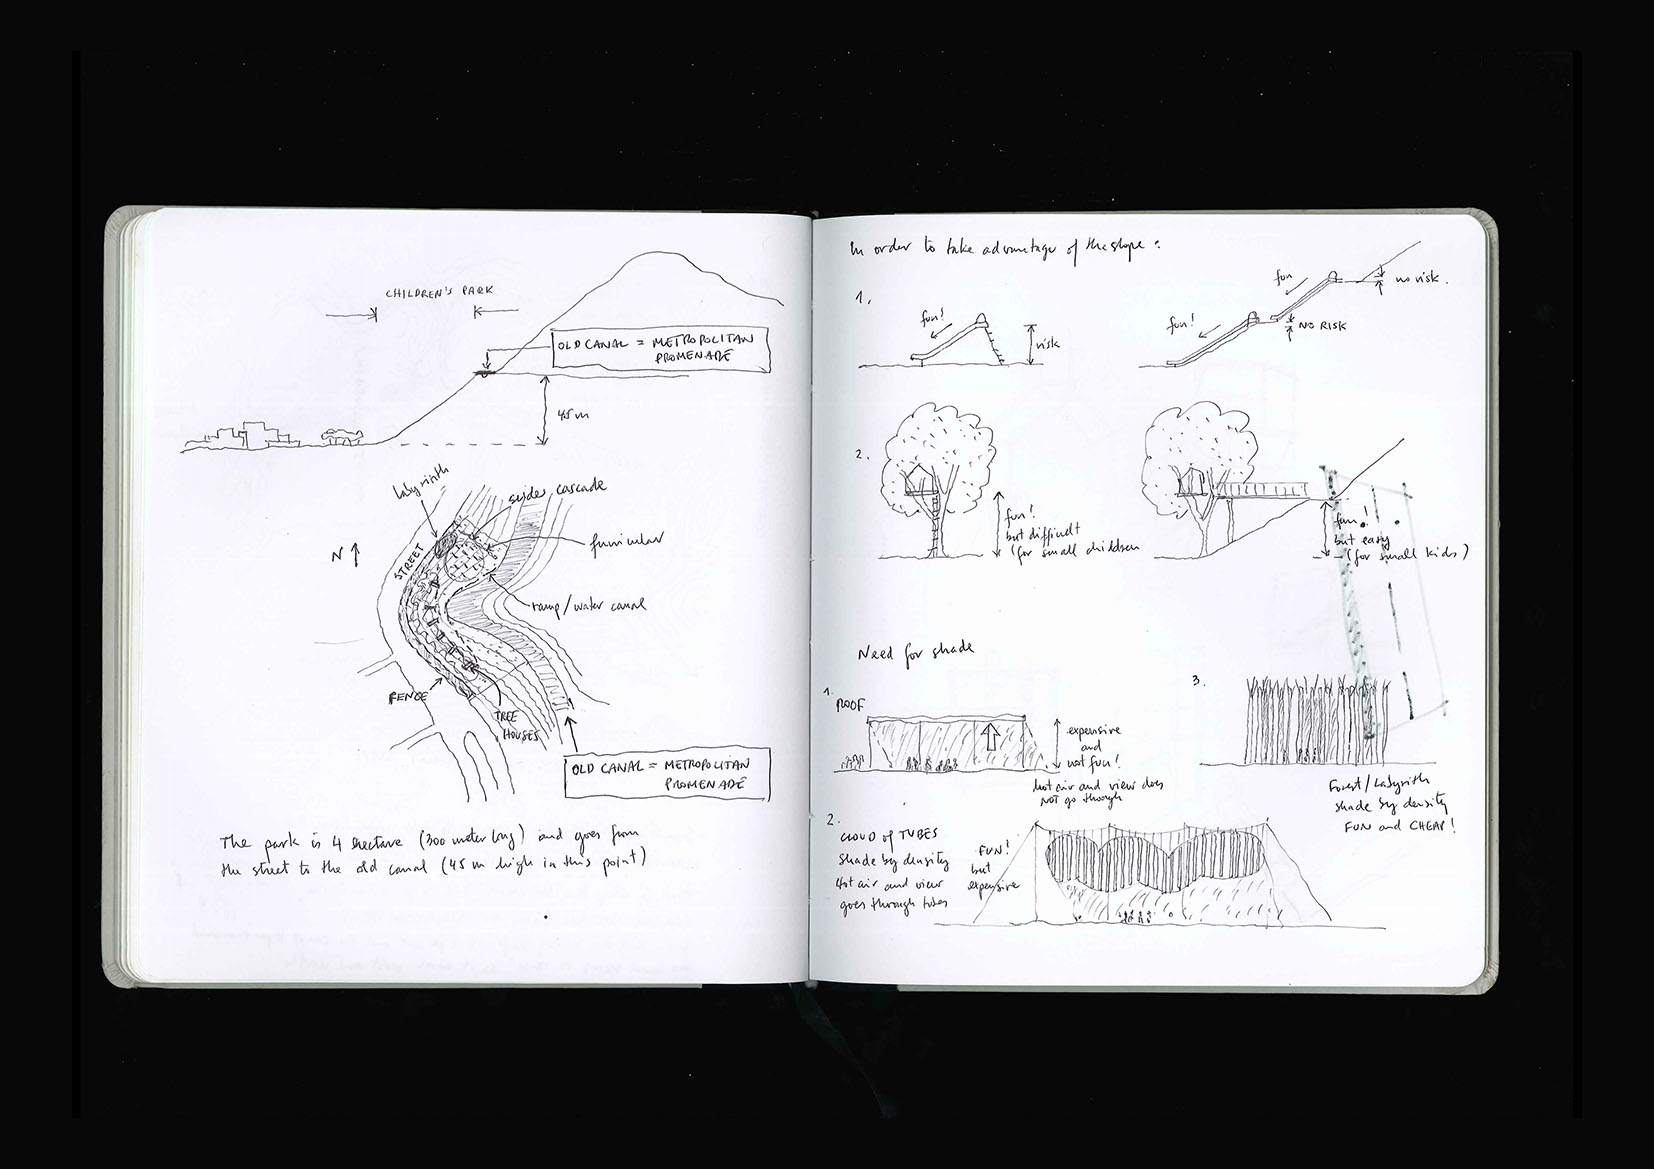 CHILDREN'S PARK
OLD CANAL = METROPOLITAN
PROMENADE
45 m
labyrinth
slides cascade
funicular
N
STREET
ramp/water canal
FENCE
TREE
HOUSES
OLD CANAL = METROPOLITAN
PROMENADE
The park is 4 hectare (300 meter long) and goes from
the street to the old canal (45 m high in this point)
In order to take advantage of the slope:
1.
fun!
risk
fun!
NO RISK
fun
no risk.
2.
fun!
but difficult
(for small children
fun!
but easy
(for small kids)
Need for shade
1.
ROOF
expensive
and
not fun!
hot air and view does
NOT go through
2.
CLOUD of TUBES
shade by density
hot air and view
goes through tubes
FUN!
but
expensive
3.
Forest/Labyrinth
shade by density
FUN and CHEAP!